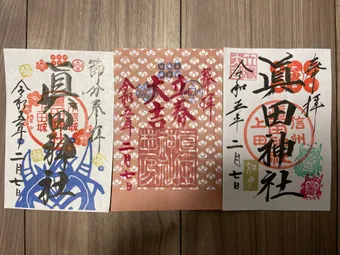 節分奉拝
眞田神社
令和五年二月七日
奉拝
立春
大吉
令和五年二月七日
奉拝
信州
眞田神社
上田
立春
令和五年二月七日